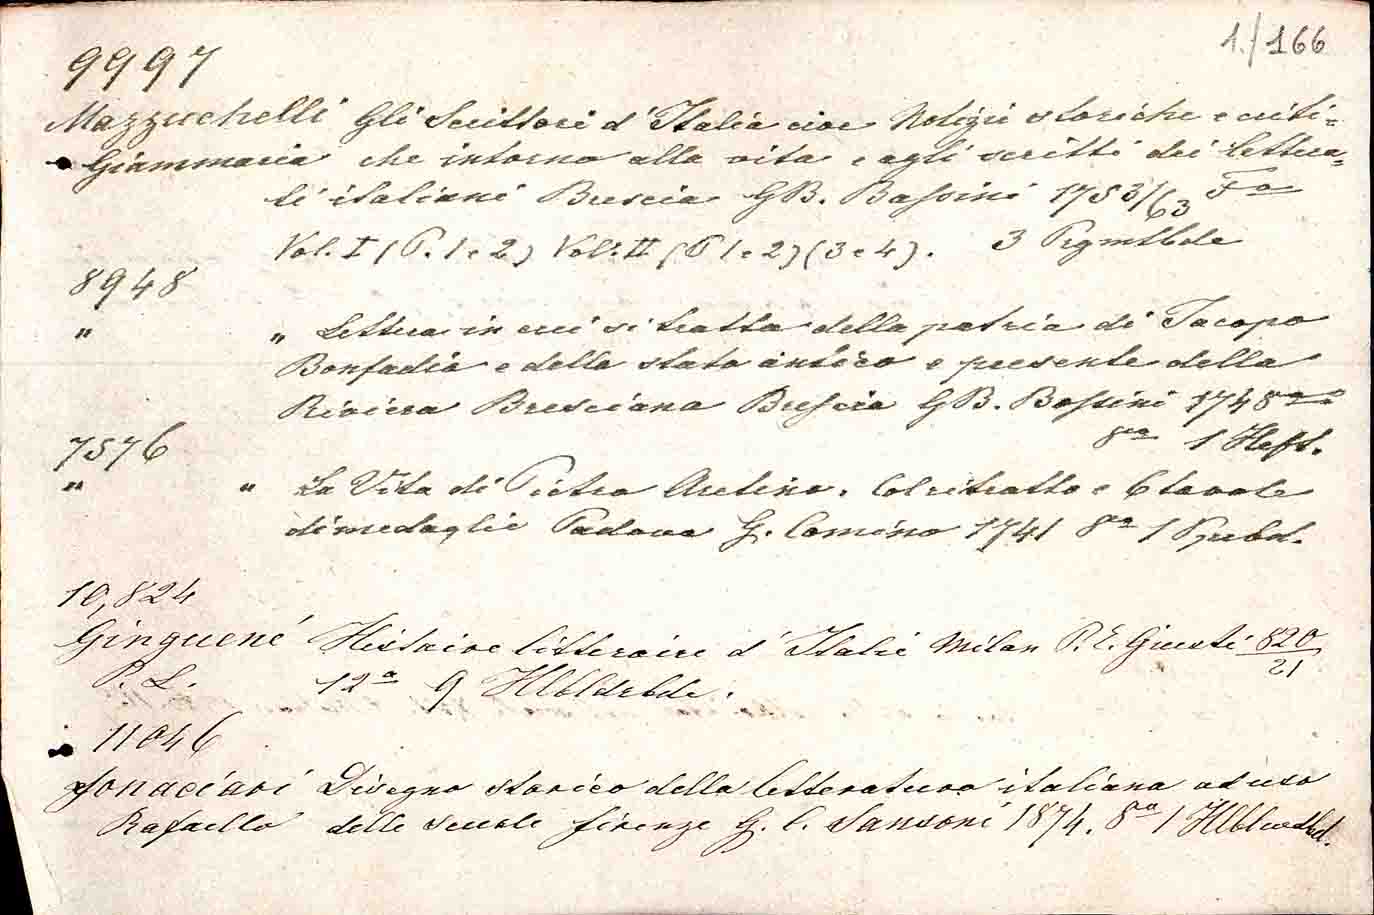 1./166
9997
Mazzuchelli Gli Scrittori d'Italia cioe Notizie storiche e criti=
Giammaria che intorno alla vita e agli scritti dei lettera=
ti italiani Brescia GB. Bossini 1753/63 Fo
Vol. I (P. 1 e 2) Vol. II (P 1 e 2) (3 e 4). 3 Pgmtbde
8948
" " Lettera in cui si tratta della patria di Jacopo
Bonfadio e dello stato antico e presente della
Riviera Bresciana Brescia GB. Bossini 1748
8vo 1 Heft.
7576
" " La Vita di Pietro Aretino. Col ritratto e 6 tavole
di medaglie Padova G. Comino 1741 8o 1
10,824
Ginguené Histoire litteraire d'Italie Milan P. E. Giusti 820/21
P. L. 12o 9 Hlbldrbde.
11046
Fornaciari Disegno storico della letteratura italiana ad uso
Rafaello delle scuole Firenze G. C. Sansoni 1874. 8o 1 Hlblwdbd.